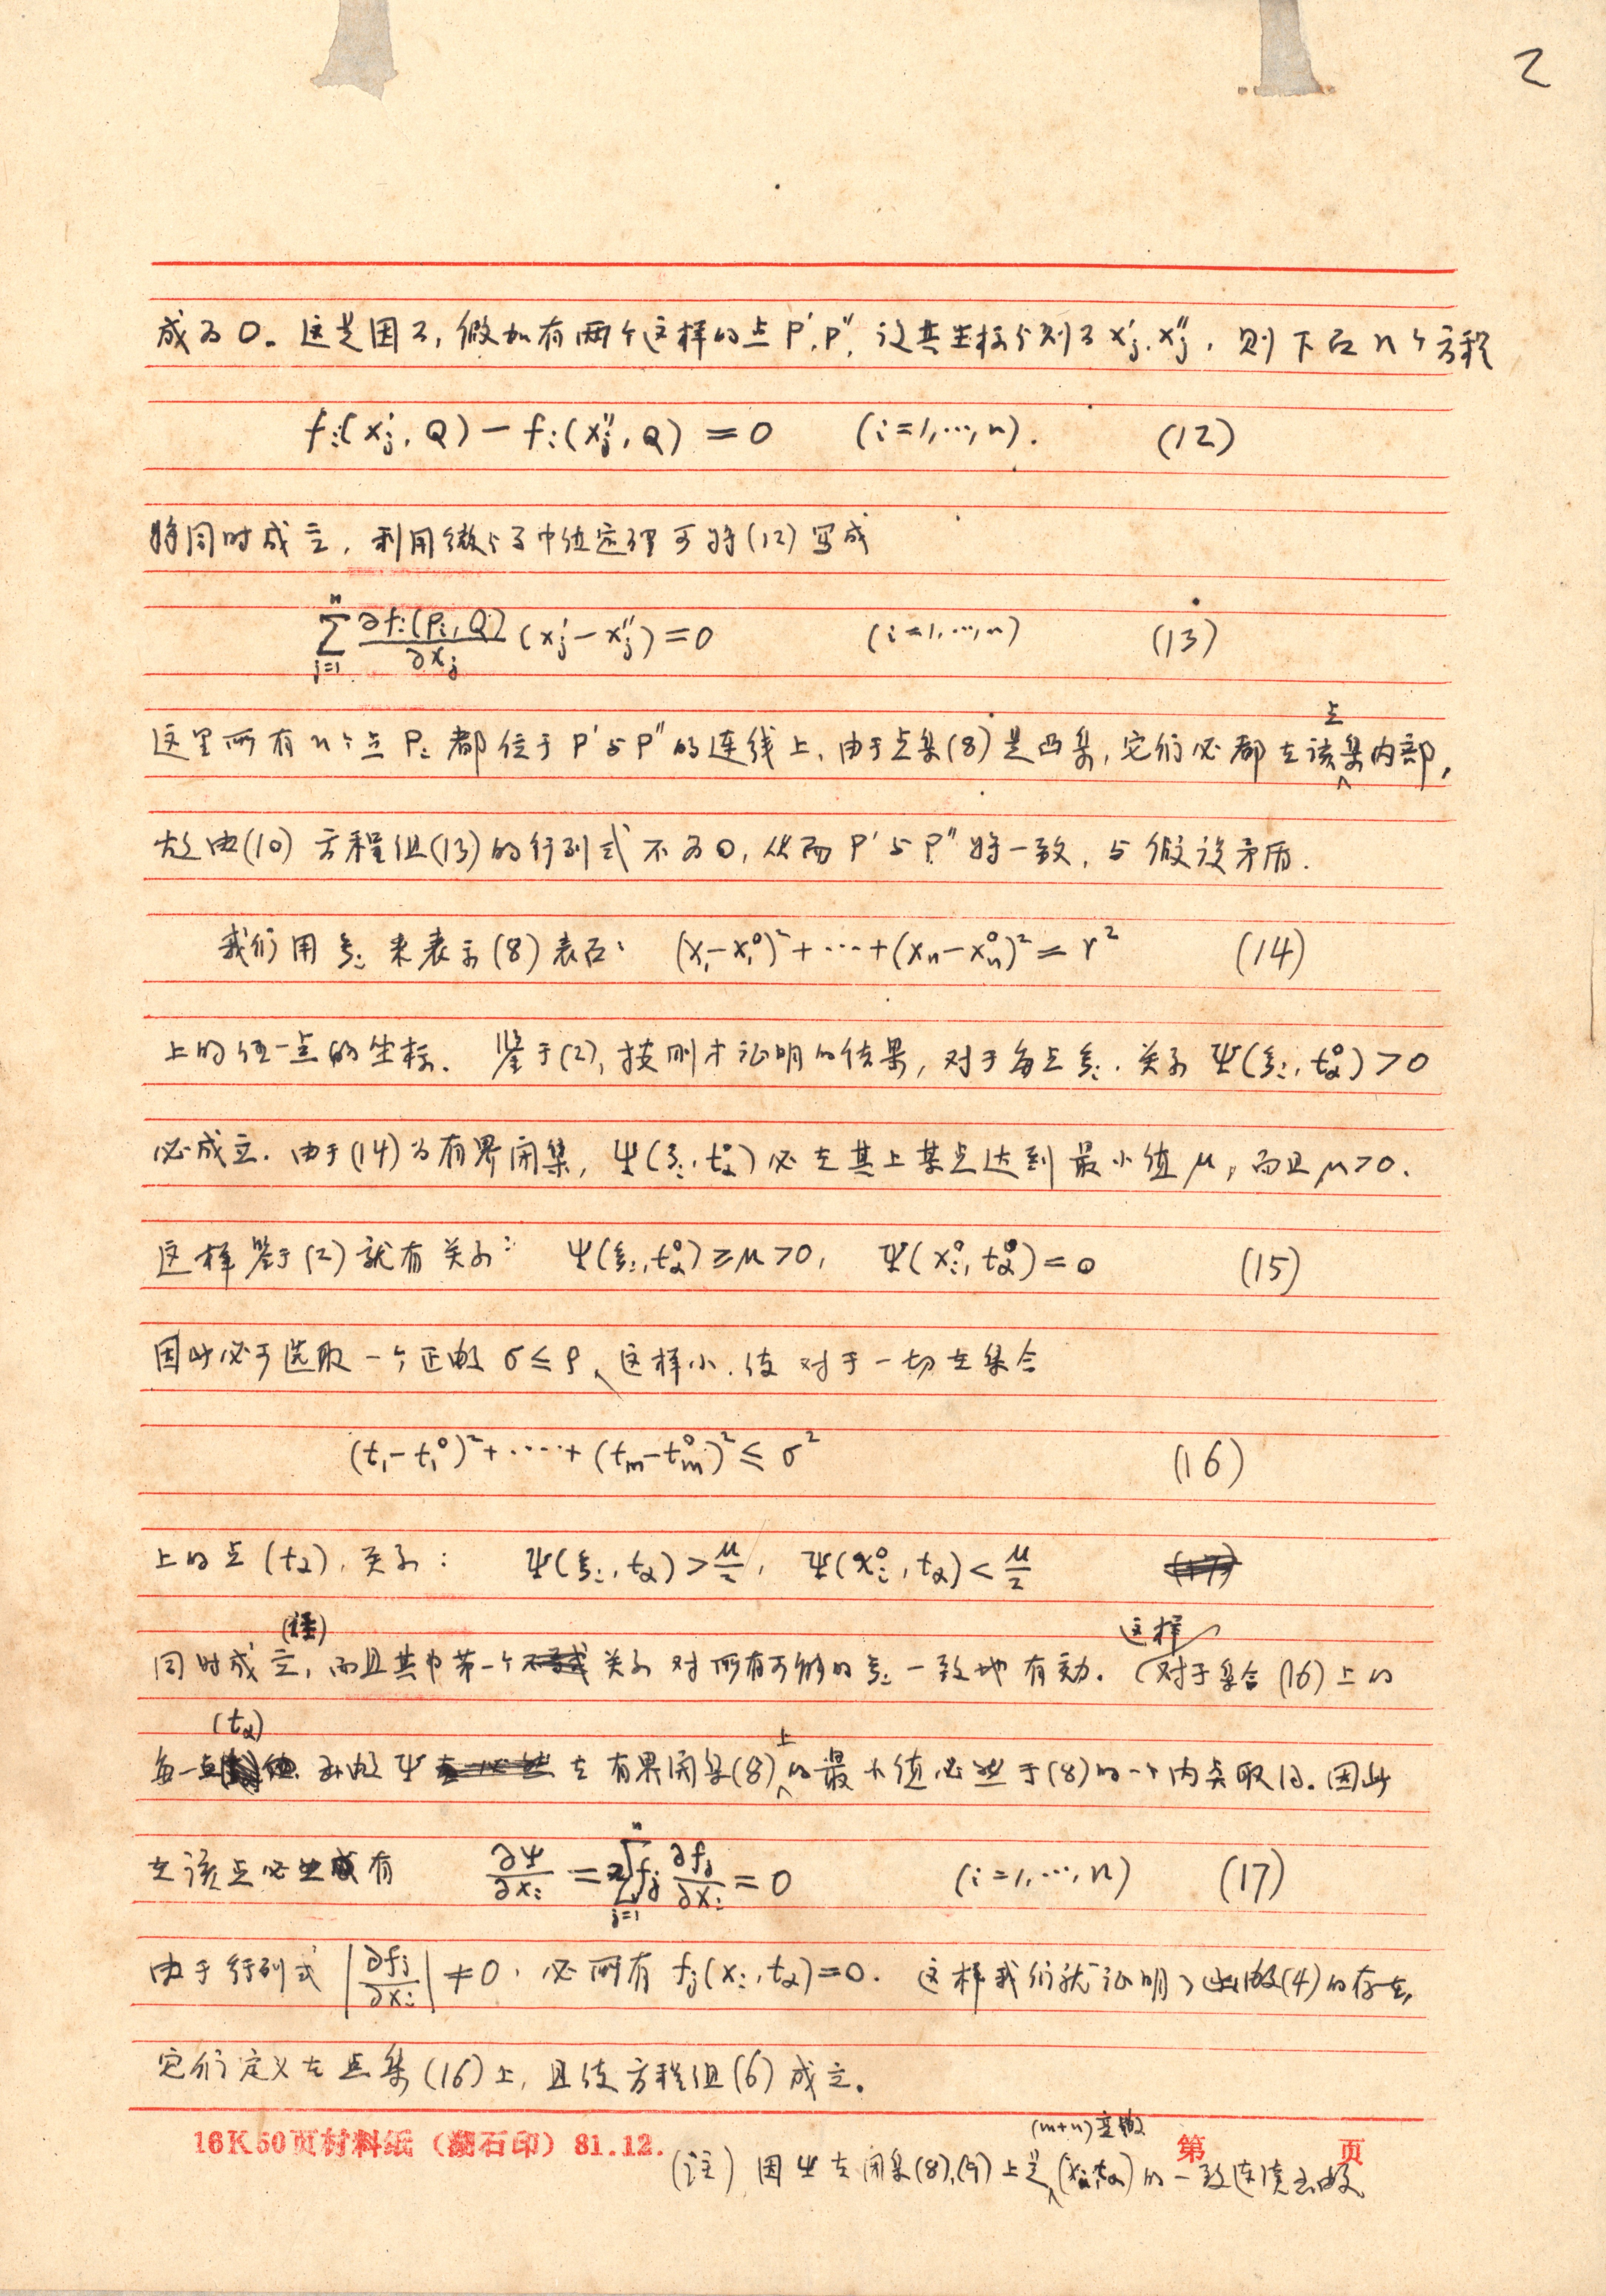 2
成为0。这是因为,假如有两个这样的点P′,P″,设其坐标分别为x′ⱼ,x″ⱼ,则下面n个方程
fᵢ(x′ⱼ, Q) − fᵢ(x″ⱼ, Q) = 0 (i=1,…,n). (12)
将同时成立,利用微分学中值定理可将(12)写成
∑ⱼ₌₁ⁿ ∂fᵢ(Pᵢ, Q)/∂xⱼ (x′ⱼ − x″ⱼ) = 0 (i=1,…,n) (13)
这里所有n个点Pᵢ都位于P′与P″的连线上,由于点集(8)是凸集,它们必都在该点集内部,
故由(10)方程组(13)的行列式不为0,从而P′与P″将一致,与假设矛盾.
我们用ξᵢ来表示(8)表面: (x₁−x₁⁰)²+⋯+(xₙ−xₙ⁰)² = r² (14)
上的任一点的坐标. 鉴于(2),按刚才证明的结果,对于每点ξᵢ,关系Ψ(ξᵢ, t_α⁰) > 0
必成立.由于(14)为有界闭集,Ψ(ξᵢ, t_α⁰)必在其上某点达到最小值μ,而且μ>0.
这样鉴于(2)就有关系: Ψ(ξᵢ, t_α⁰) ≥ μ > 0, Ψ(xᵢ⁰, t_α⁰) = 0 (15)
因此必可选取一个正数σ ≤ ρ,这样小,使对于一切在集合
(t₁−t₁⁰)²+⋯⋯+(tₘ−tₘ⁰)² ≤ σ² (16)
上的点(t_α),关系: Ψ(ξᵢ, t_α) > μ/2, Ψ(xᵢ⁰, t_α) < μ/2
同时成立(注),而且其中第一个关系对所有可能的ξᵢ一致地有效.这样对于集合(16)上的
每一点(t_α),函数Ψ在有界闭集(8)上的最小值必然于(8)的一个内点取得.因此
在该点必有 ∂Ψ/∂xᵢ = 2∑ⱼ₌₁ⁿ fⱼ ∂fⱼ/∂xᵢ = 0 (i=1,…,n) (17)
由于行列式 |∂fⱼ/∂xᵢ| ≠ 0,必所有fⱼ(xᵢ, t_α)=0. 这样我们就证明了函数(4)的存在,
它们定义在点集(16)上,且使方程组(6)成立.
16K50页材料纸(湖石印)81.12. 第 页
(注)因Ψ在闭集(8),(9)上是(m+n)变数(xᵢ,t_α)的一致连续函数